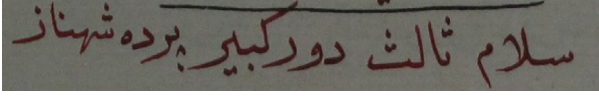 سلام ثالث دور كبير پرده شهناز